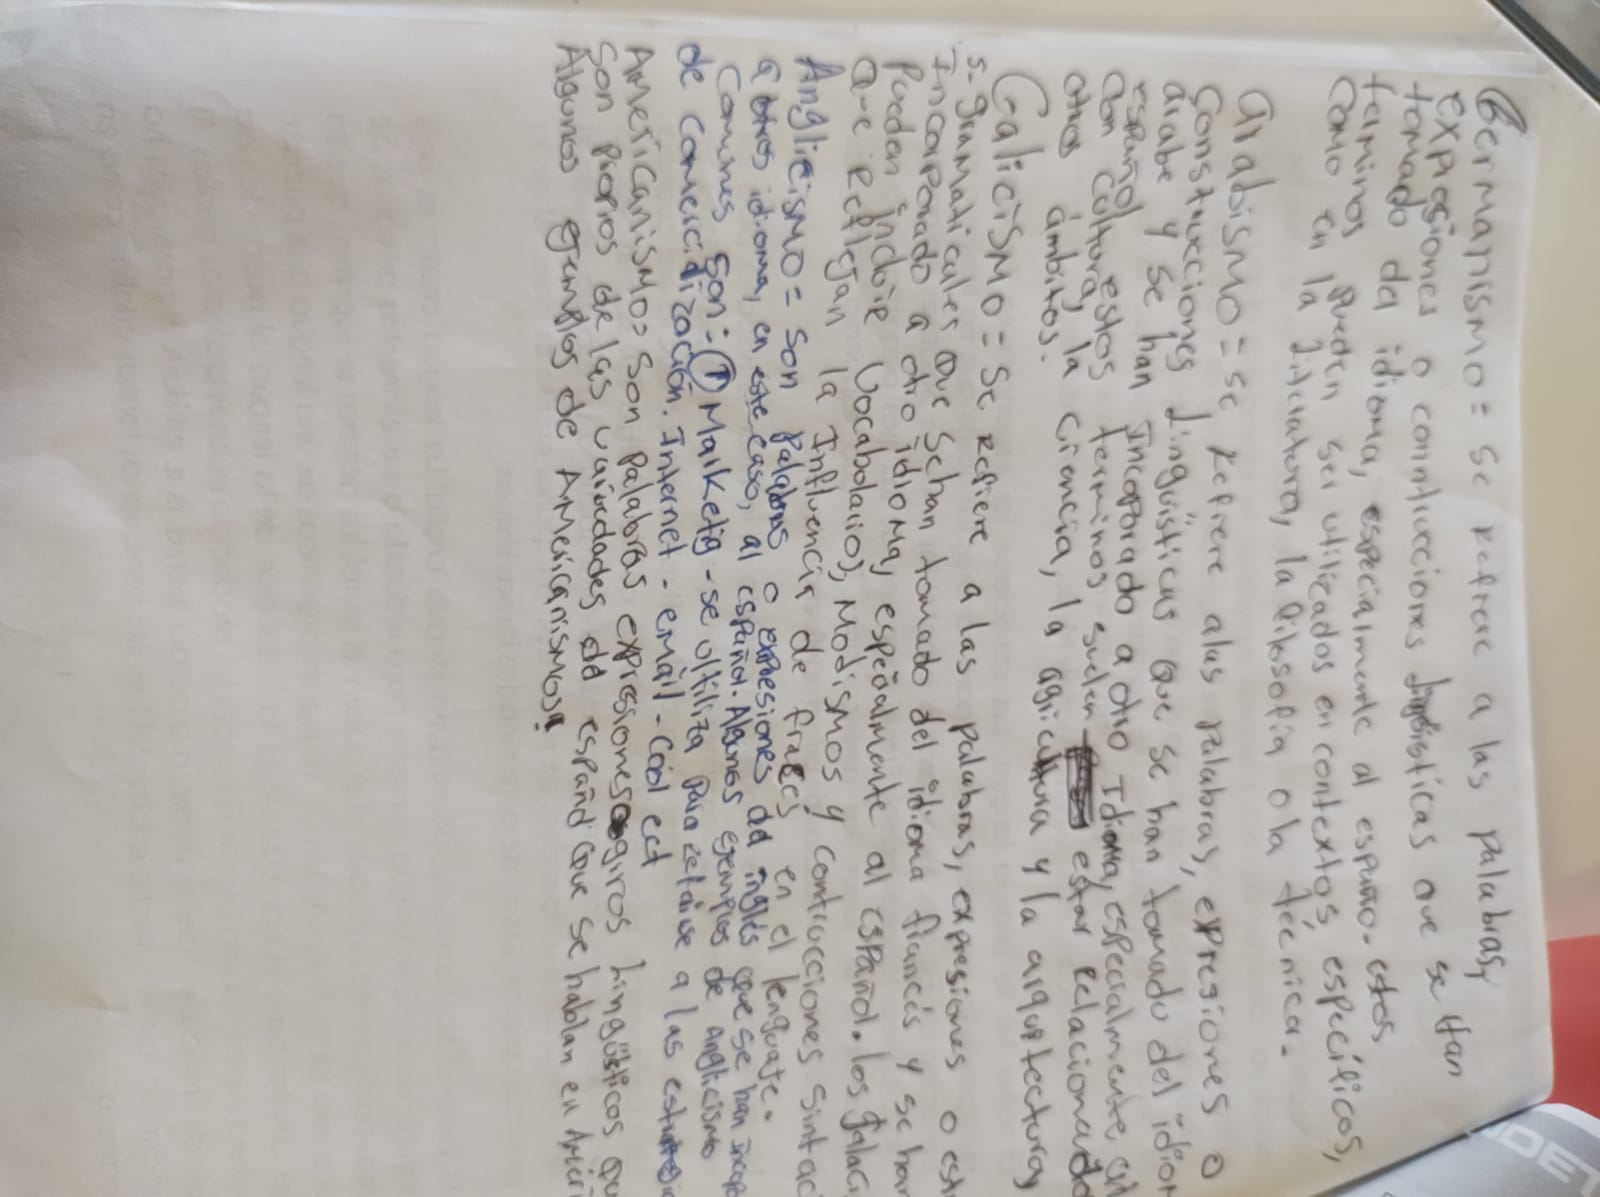 Germanismo = se refiere a las palabras,
expresiones o contrucciones lingüísticas que se Han
tomado del idioma, especialmente al español. estos
terminos pueden ser utilizados en contextos específicos,
como en la literatura, la filosofia o la técnica.
Arabismo = se refiere alas palabras, expresiones o
Construcciones Lingüísticas que se han tomado del idiom
árabe y se han Incorporado a otro Idioma, especialmente al
español estos terminos suelen estar relacionado
con cultura, la ciencia, la agricultura y la arquitectura y
otros ámbitos.
Galicismo = Se refiere a las palabras, expresiones o est
s. gramaticales que sehan tomado del idioma francés y se han
Incorporado a otro idioma, espeóalmente al español. los galaci
Pueden indoir Vocabolario, Modismos y contrucciones sintac
que reflejan la Influencia de fraces en el lenguaje.
Anglicismo = son palabras o expresiones del inglés que se han incorpo
a otros idioma, en este caso, al español. Algunos ejemplos de Anglicismo
Comunes son: ① Marketig - se ultiliza para referirse a las estrategi
de comercialización. Internet - email - Cool ect
Americanismo = Son palabras expresiones o giros Lingüísticos qu
Son propios de las variedades del español que se hablan en Améri
Algunos ejemplos de Americanismos:
IDET